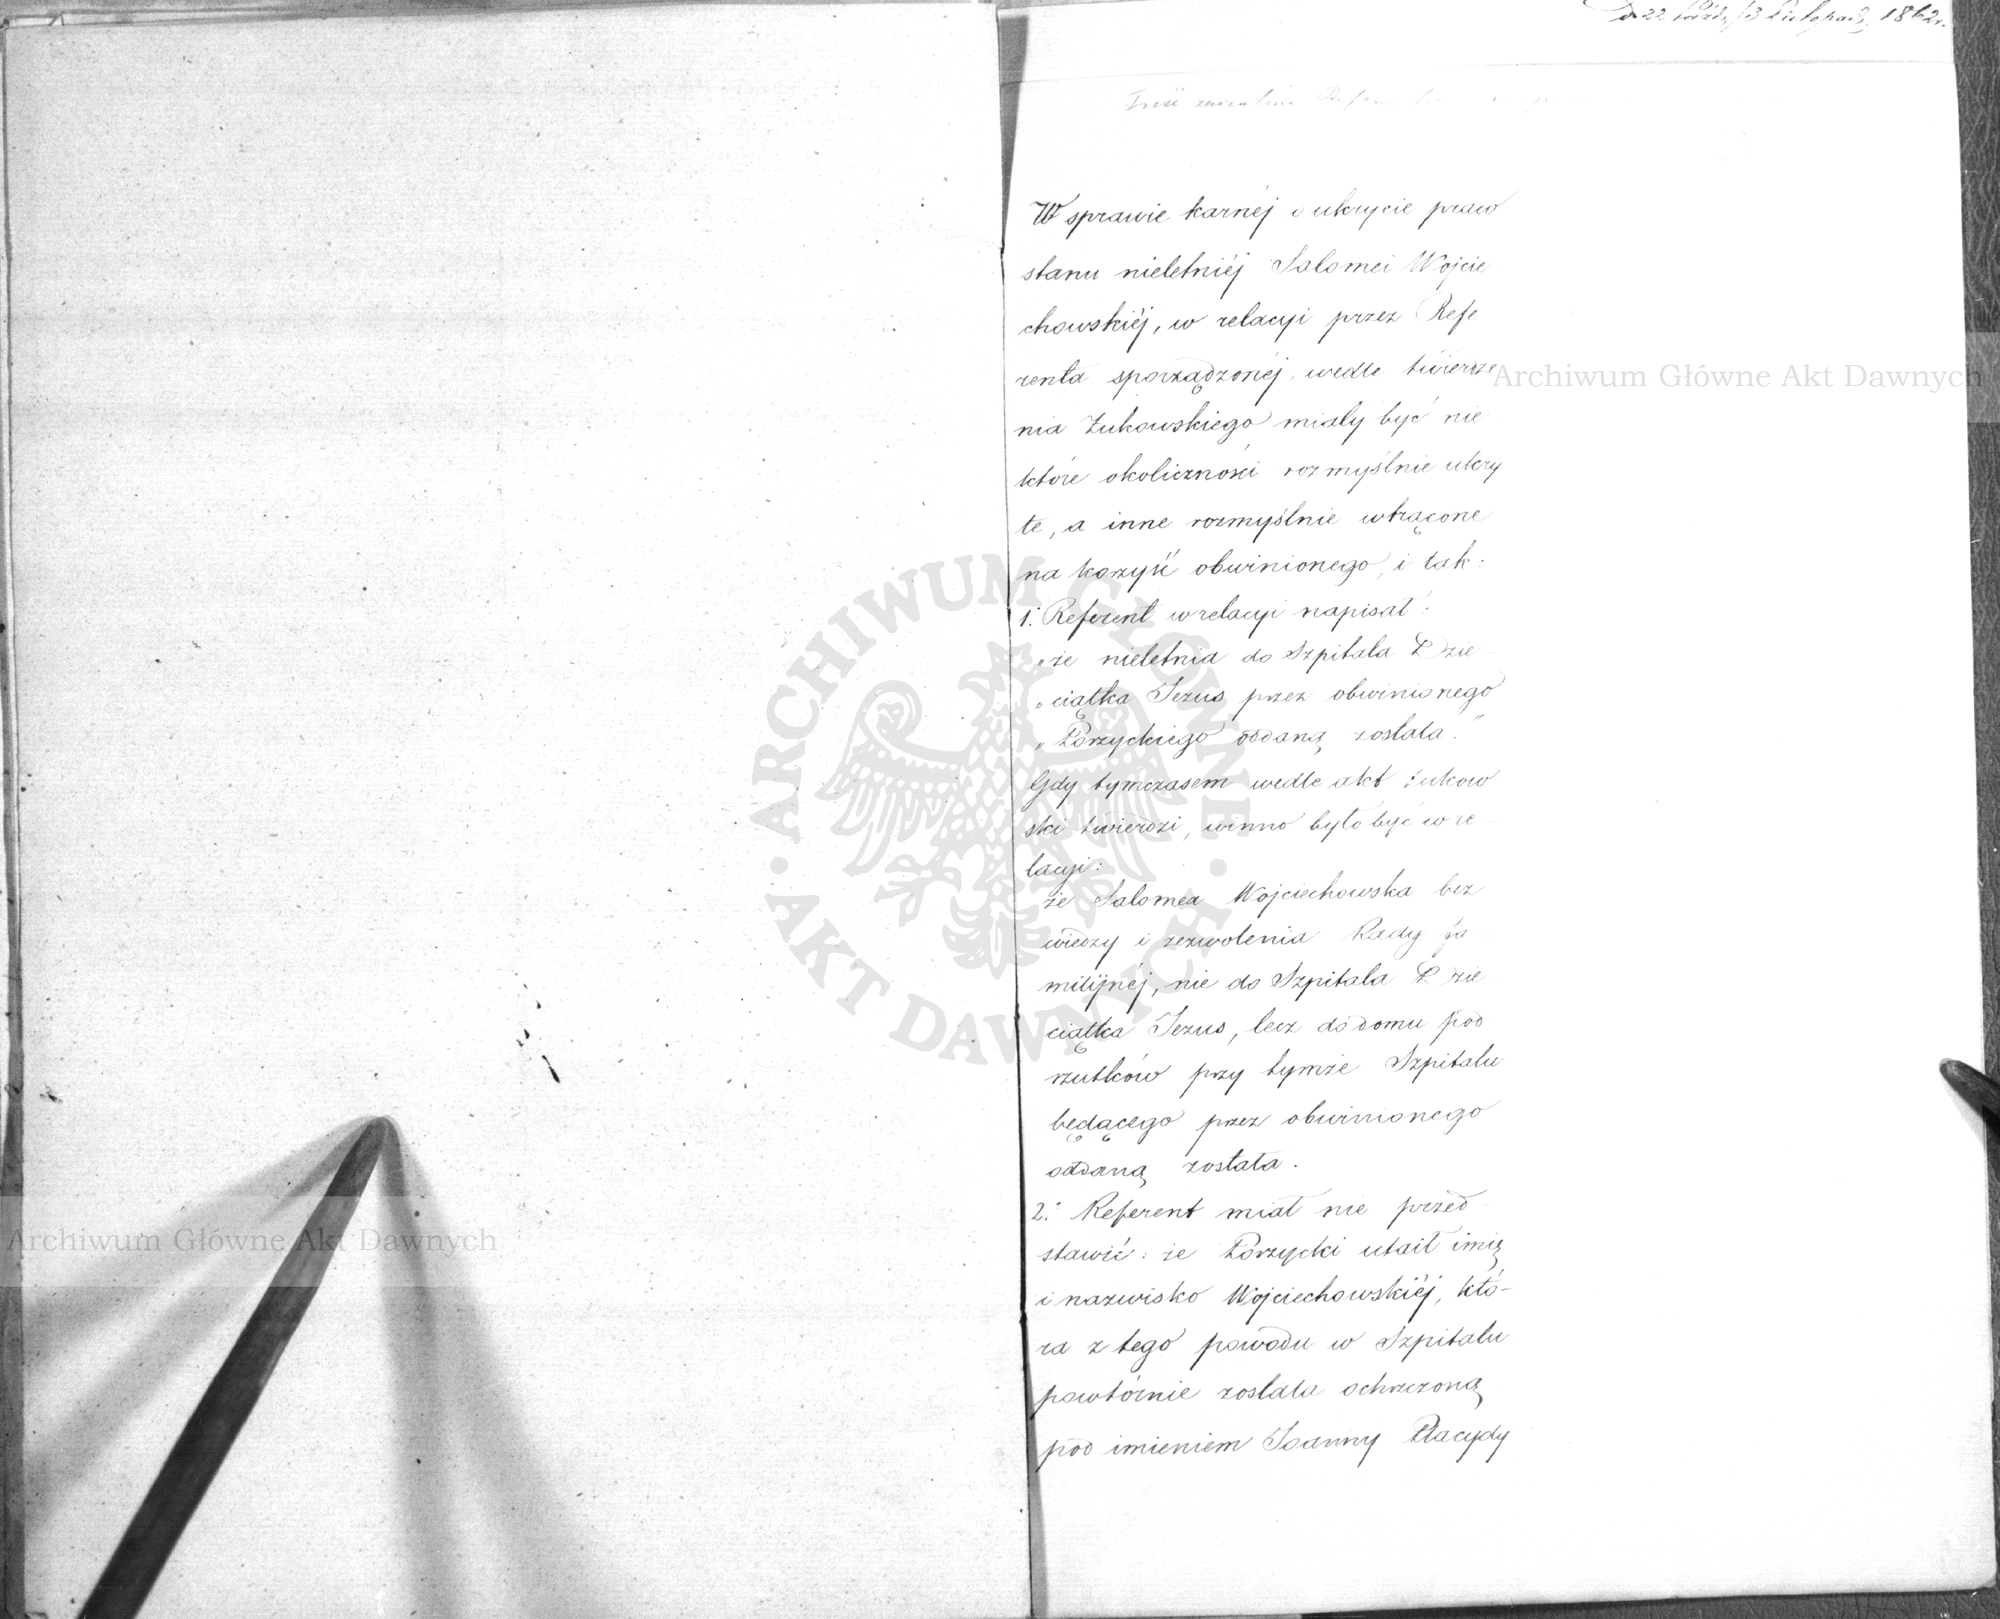 D 22 Paźdz/3 Listopada 1862 r.
Treść
W sprawie karnéj o ukrycie praw
stanu nieletniéj Salomei Wojcie
chowskiéj, w relacyi przez Refe
renta sporządzonéj, wedle twierdze
nia Żukowskiego miały być nie
które okoliczności rozmyślnie ukry
te, a inne rozmyślnie wtrącone
na korzyść obwinionego, i tak:
1. Referent w relacyi napisał:
„że nieletnia do Szpitala Dzie-
„ciątka Jezus przez obwinionego
„Pórzyckiego oddaną została."
Gdy tymczasem wedle akt Żukow
ski twierdzi, winno było być w re-
lacyi:
że Salomea Wojciechowska bez
wiedzy i zezwolenia Rady fa
milijnéj, nie do Szpitala Dzie
ciątka Jezus, lecz do domu pod
rzutków przy tymże Szpitalu
będącego przez obwinionego
oddaną została.
2. Referent miał nie przed-
stawić: że Pórzycki utaił imię
i nazwisko Wojciechowskiéj, któ-
ra z tego powodu w Szpitalu
powtórnie została ochrzczoną
pod imieniem Joanny Placydy
Archiwum Główne Akt Dawnych
Archiwum Główne Akt Dawnych
ARCHIWUM GŁÓWNE AKT DAWNYCH